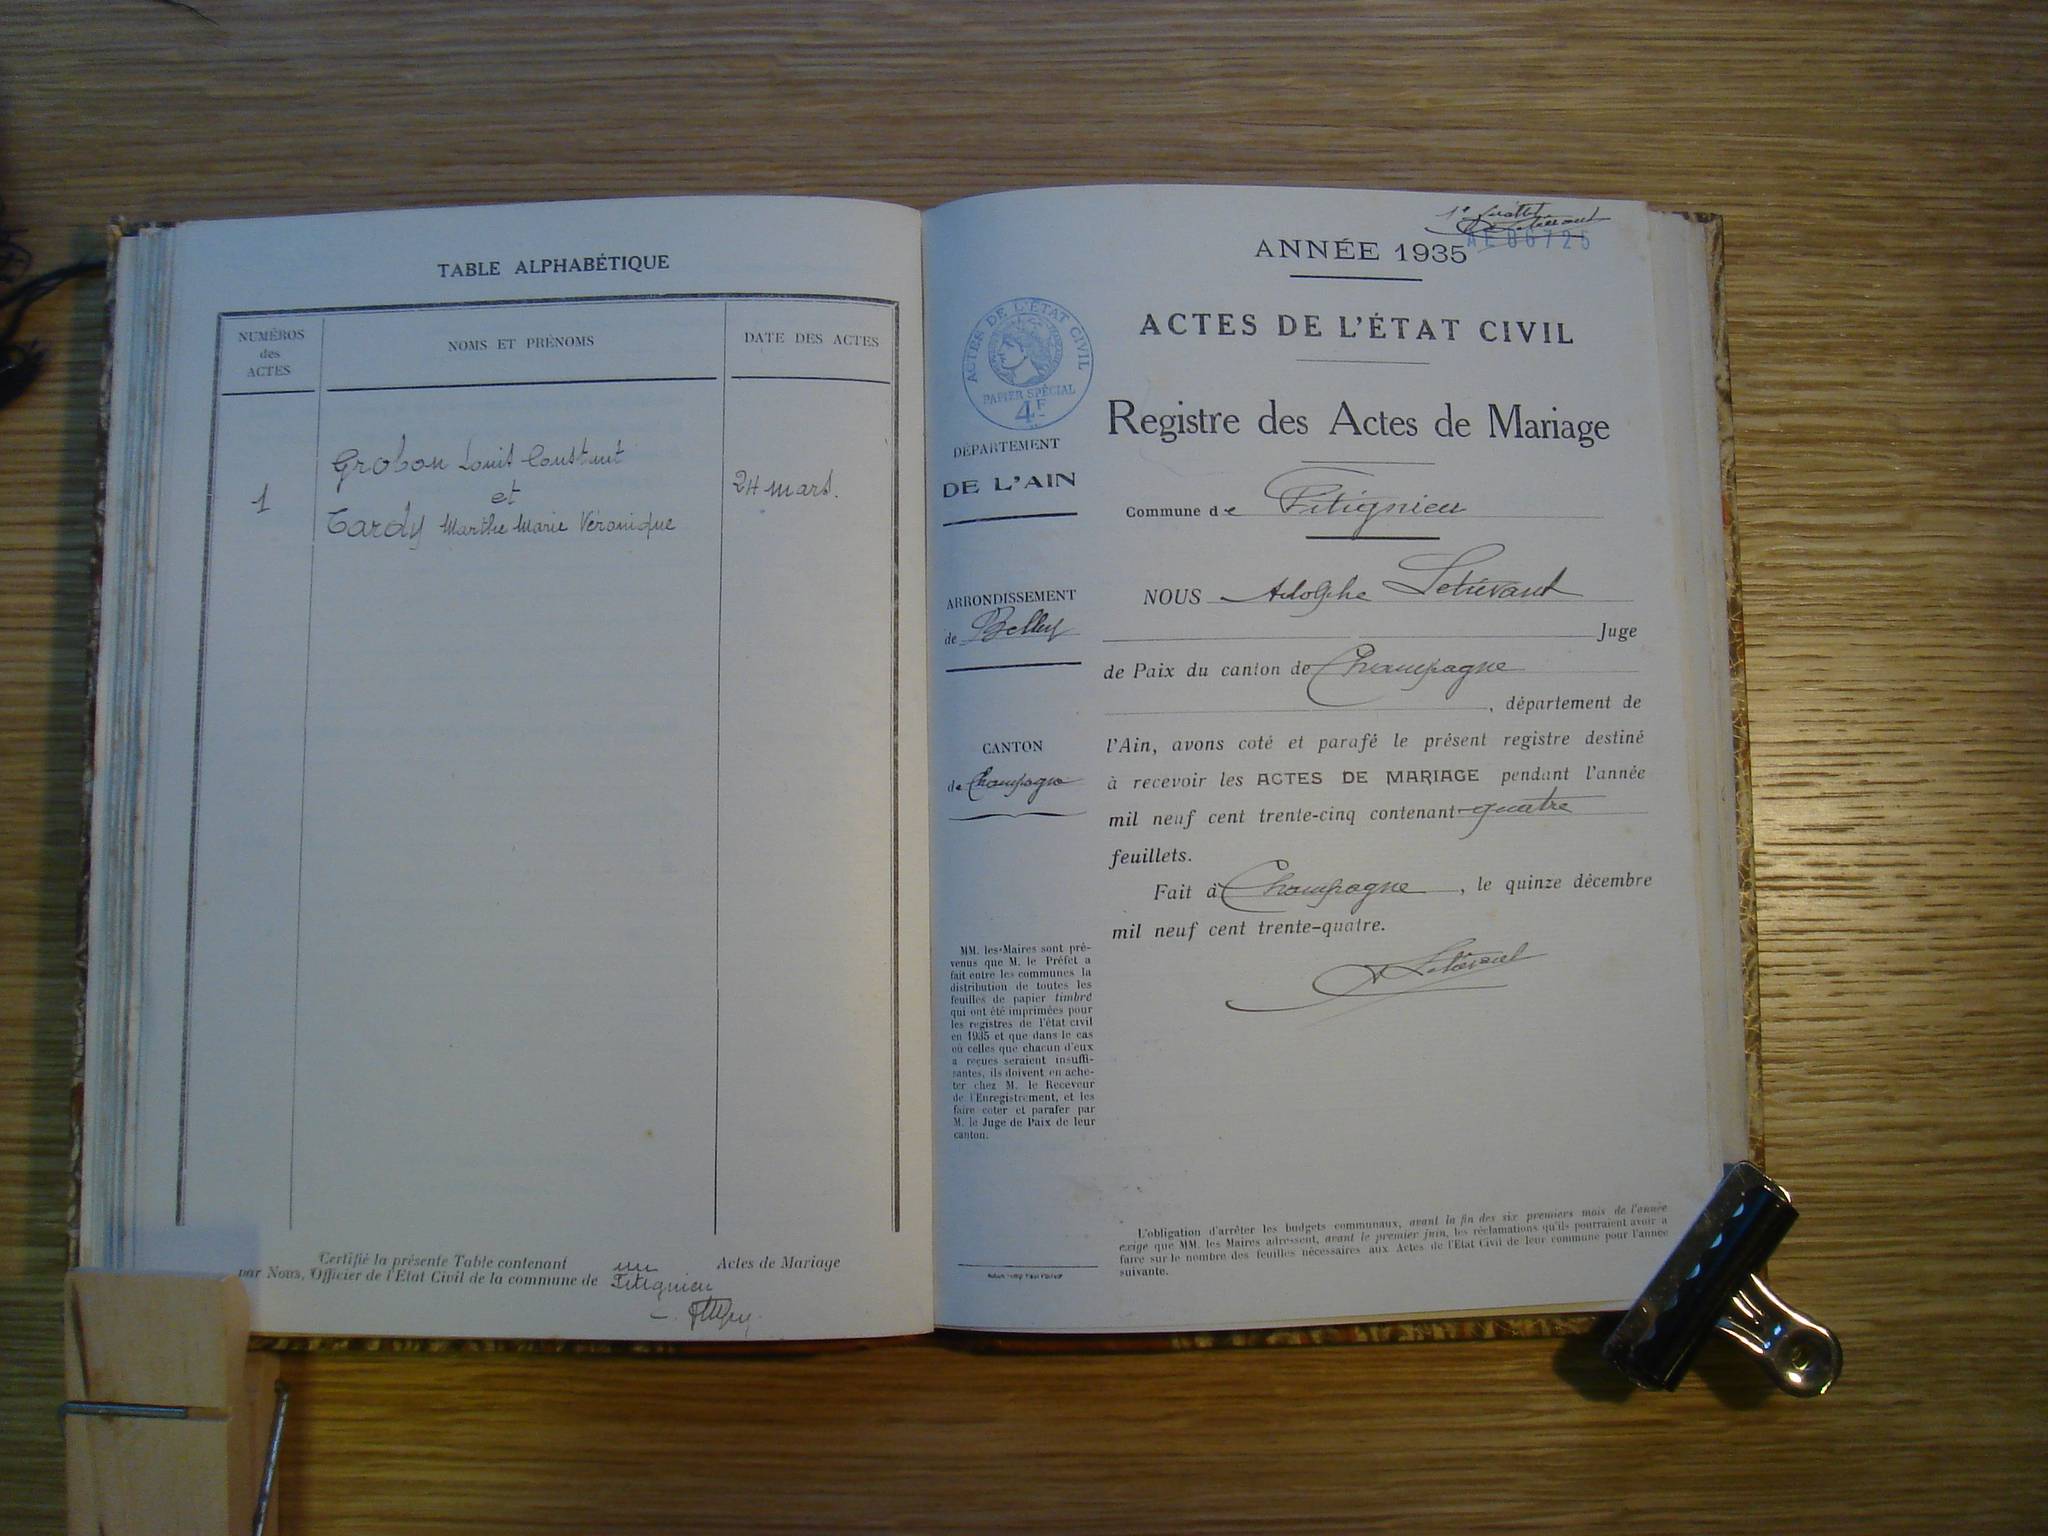 TABLE ALPHABÉTIQUE
NUMÉROS
des
ACTES
NOMS ET PRÉNOMS
DATE DES ACTES
Grobon Louis Constant
1
et
24 mars.
Tardy Marthe Marie Véronique
Certifié la présente Table contenant un Actes de Mariage
par Nous, Officier de l'Etat Civil de la commune de Fitignieu
1er feuillet
AE 06725
ANNÉE 1935
ACTES DE L'ÉTAT CIVIL
ACTES DE L'ÉTAT CIVIL
PAPIER SPÉCIAL
4F
Registre des Actes de Mariage
DÉPARTEMENT
DE L'AIN
Commune de Fitignieu
ARRONDISSEMENT
de Belley
CANTON
de Champagne
NOUS Adolphe Letiévant
Juge
de Paix du canton de Champagne
, département de
l'Ain, avons coté et parafé le présent registre destiné
à recevoir les ACTES DE MARIAGE pendant l'année
mil neuf cent trente-cinq contenant quatre
feuillets.
Fait à Champagne, le quinze décembre
mil neuf cent trente-quatre.
A Letiévant
MM. les Maires sont pré-
venus que M. le Préfet a
fait entre les communes la
distribution de toutes les
feuilles de papier timbré
qui ont été imprimées pour
les registres de l'état civil
en 1935 et que dans le cas
où celles que chacun d'eux
a reçues seraient insuffi-
santes, ils doivent en ache-
ter chez M. le Receveur
de l'Enregistrement, et les
faire coter et parafer par
M. le Juge de Paix de leur
canton.
L'obligation d'arrêter les budgets communaux, avant la fin des six premiers mois de l'année
exige que MM. les Maires adressent, avant le premier juin, les réclamations qu'ils pourraient avoir a
faire sur le nombre des feuilles nécessaires aux Actes de l'Etat Civil de leur commune pour l'année
suivante.